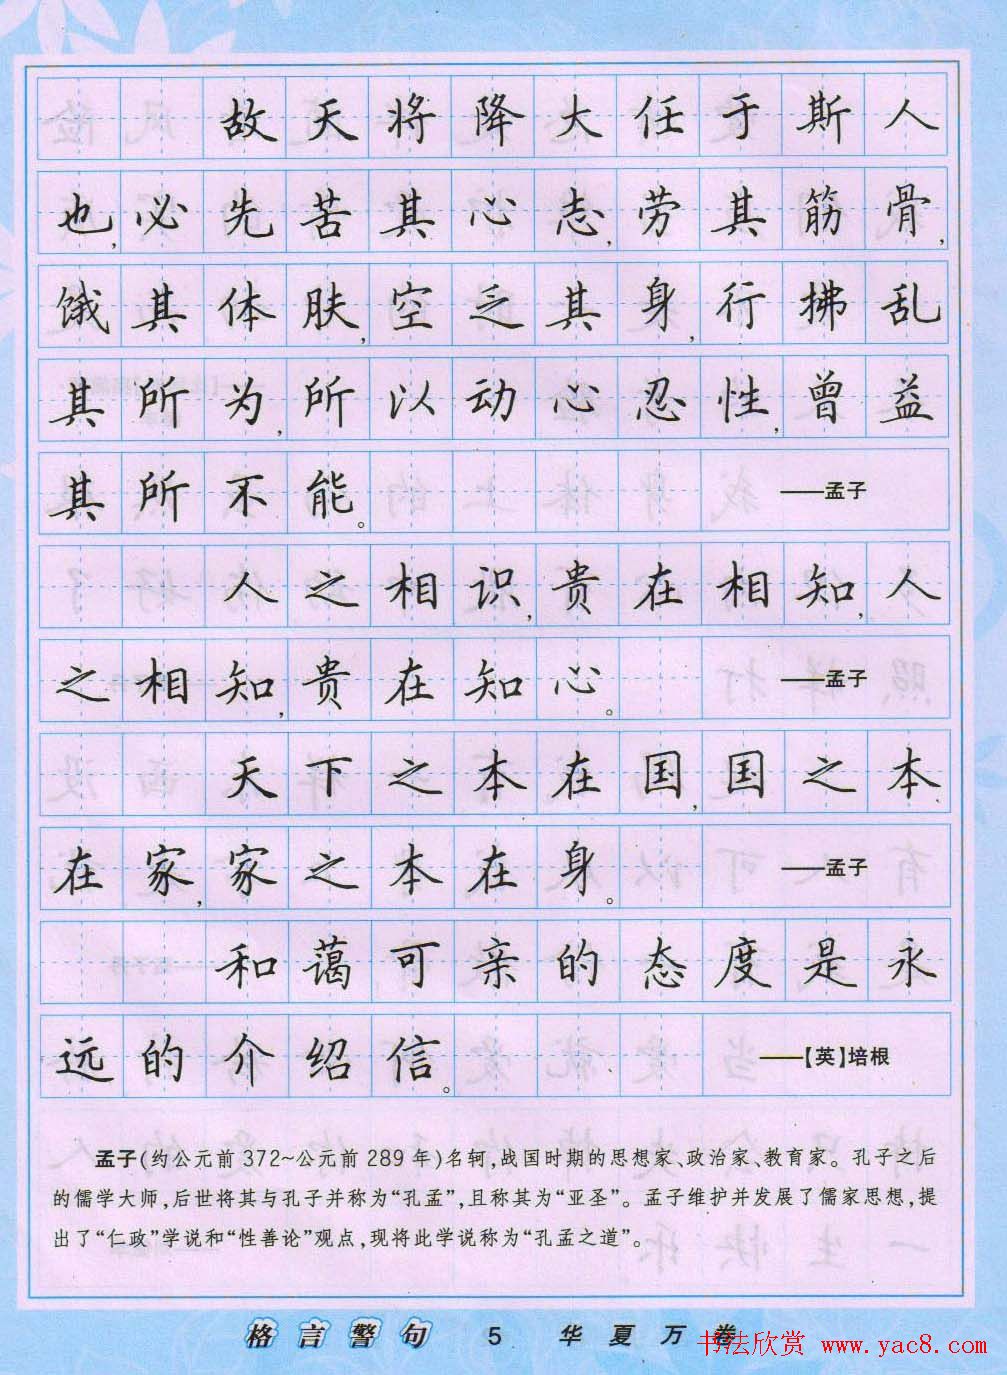 故天将降大任于斯人
也,必先苦其心志,劳其筋骨,
饿其体肤,空乏其身,行拂乱
其所为,所以动心忍性,曾益
其所不能。 ——孟子
人之相识,贵在相知,人
之相知,贵在知心。 ——孟子
天下之本在国,国之本
在家,家之本在身。 ——孟子
和蔼可亲的态度是永
远的介绍信。 ——【英】培根
孟子(约公元前372~公元前289年)名轲,战国时期的思想家、政治家、教育家。孔子之后
的儒学大师,后世将其与孔子并称为“孔孟”,且称其为“亚圣”。孟子维护并发展了儒家思想,提
出了“仁政”学说和“性善论”观点,现将此学说称为“孔孟之道”。
格言警句 5 华夏万卷
书法欣赏 www.yac8.com